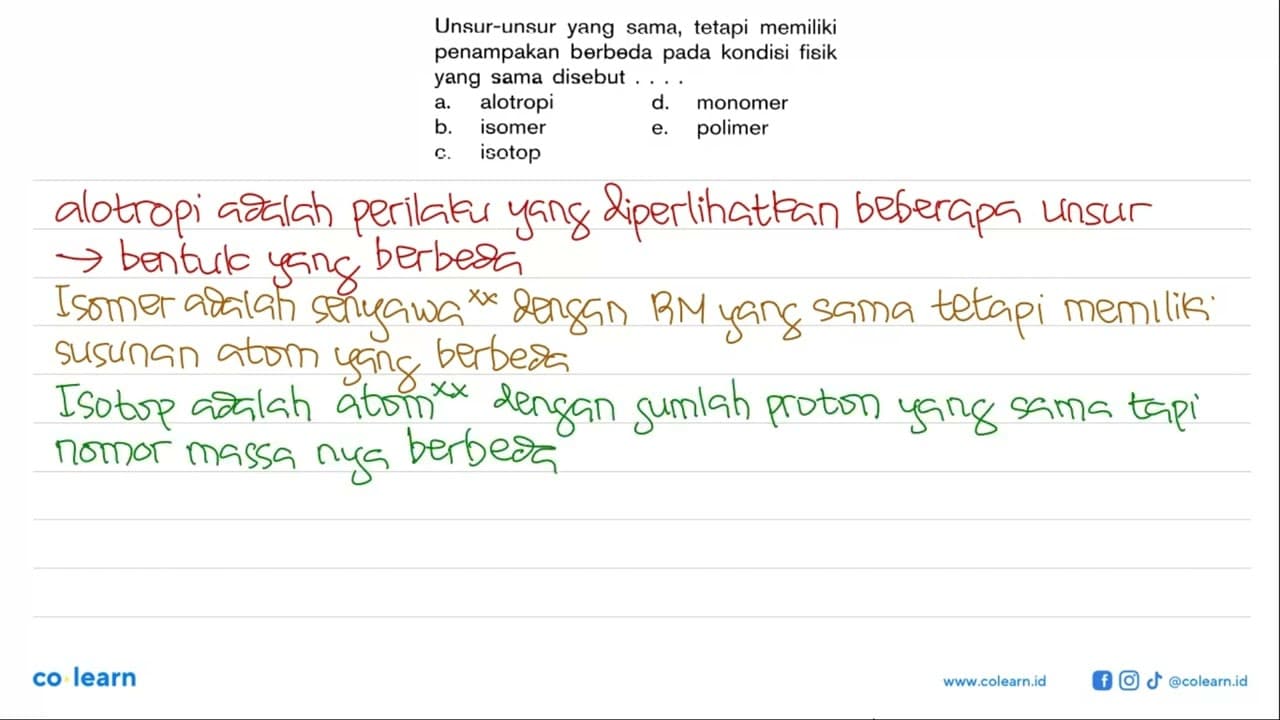 Unsur-unsur yang sama, tetapi memiliki
penampakan berbeda pada kondisi fisik
yang sama disebut . . . .
a. alotropi d. monomer
b. isomer e. polimer
c. isotop
alotropi adalah perilaku yang diperlihatkan beberapa unsur
→ bentuk yang berbeda
Isomer adalah senyawa xx dengan RM yang sama tetapi memiliki
susunan atom yang berbeda
Isotop adalah atom xx dengan jumlah proton yang sama tapi
nomor massa nya berbeda
co learn
www.colearn.id @colearn.id